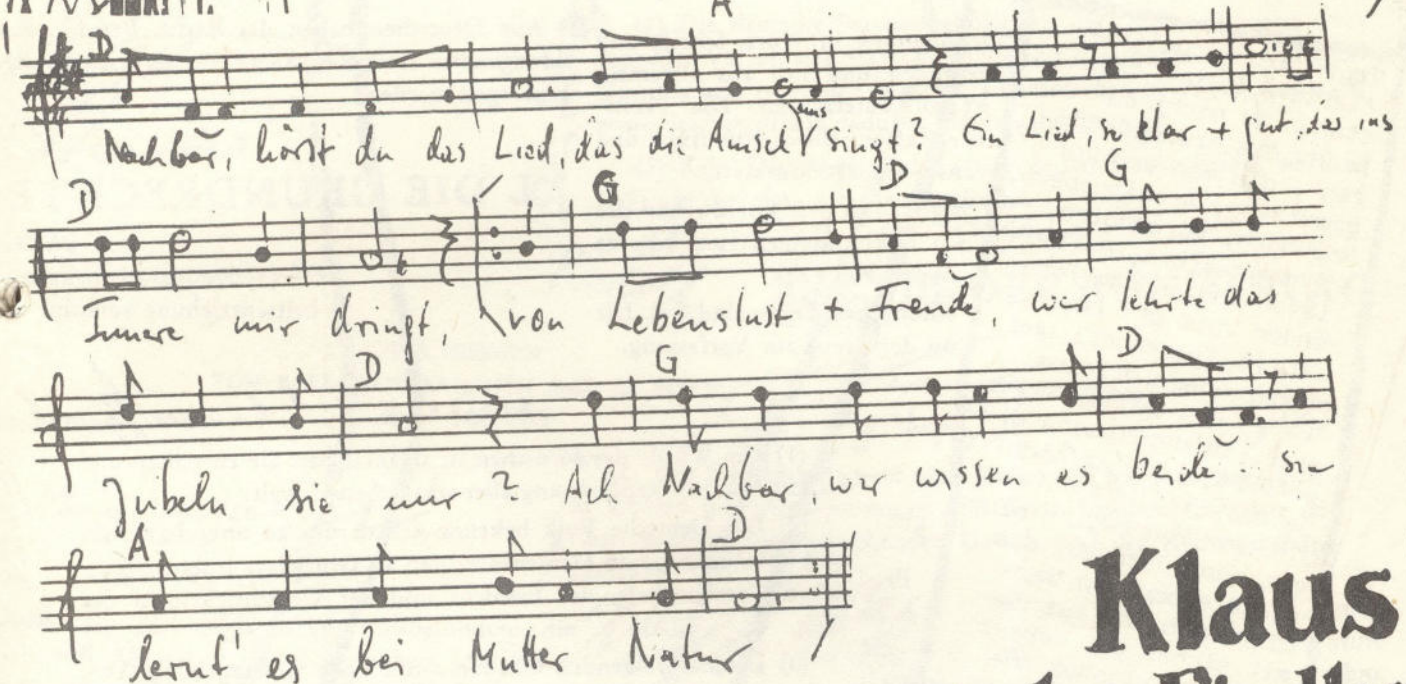 A
D
Nachbar, hörst du das Lied, das die Amsel uns singt? Ein Lied, so klar + gut, das ins
D G D G
Innere mir dringt, von Lebenslust + Freude, wer lehrte das
D G D
Jubeln sie nur? Ach Nachbar, wir wissen es beide sie
A D
lernt' es bei Mutter Natur
Klaus